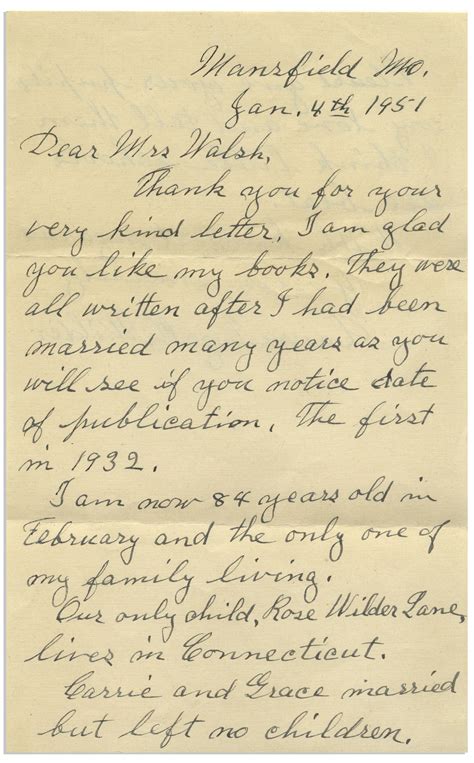 Mansfield Mo.
Jan. 4th 1951
Dear Mrs Walsh,
Thank you for your
very kind letter. I am glad
you like my books. They were
all written after I had been
married many years as you
will see if you notice date
of publication. The first
in 1932.
I am now 84 years old in
February and the only one of
my family living.
Our only child, Rose Wilder Lane,
lives in Connecticut.
Carrie and Grace married
but left no children.